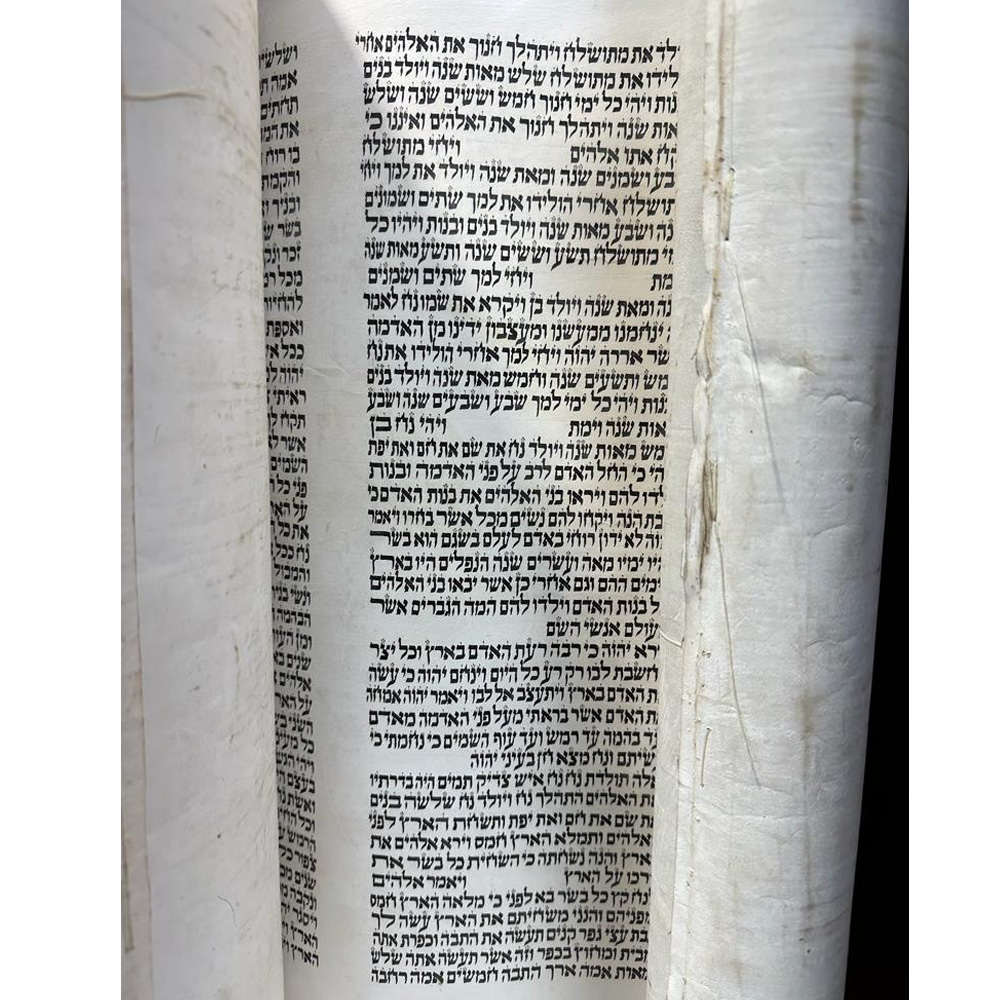 לד את מתושלח ויתהלך חנוך את האלהים אחרי
לידו את מתושלח שלש מאות שנה ויולד בנים
נות ויהי כל ימי חנוך חמש וששים שנה ושלש
אות שנה ויתהלך חנוך את האלהים ואיננו כי
קח אתו אלהים ויחי מתושלח
בע ושמנים שנה ומאת שנה ויולד את למך ויחי
תושלח אחרי הולידו את למך שתים ושמונים
נה ושבע מאות שנה ויולד בנים ובנות ויהיו כל
מי מתושלח תשע וששים שנה ותשע מאות שנה
מת ויחי למך שתים ושמנים
נה ומאת שנה ויולד בן ויקרא את שמו נח לאמר
ינחמנו ממעשנו ומעצבון ידינו מן האדמה
שר אררה יהוה ויחי למך אחרי הולידו את נח
מש ותשעים שנה וחמש מאת שנה ויולד בנים
נות ויהי כל ימי למך שבע ושבעים שנה ושבע
אות שנה וימת ויהי נח בן
מש מאות שנה ויולד נח את שם את חם ואת יפת
הי כי החל האדם לרב על פני האדמה ובנות
לדו להם ויראו בני האלהים את בנות האדם כי
בת הנה ויקחו להם נשים מכל אשר בחרו ויאמר
וה לא ידון רוחי באדם לעלם בשגם הוא בשר
היו ימיו מאה ועשרים שנה הנפלים היו בארץ
ימים ההם וגם אחרי כן אשר יבאו בני האלהים
ל בנות האדם וילדו להם המה הגברים אשר
עולם אנשי השם
ירא יהוה כי רבה רעת האדם בארץ וכל יצר
חשבת לבו רק רע כל היום וינחם יהוה כי עשה
ת האדם בארץ ויתעצב אל לבו ויאמר יהוה אמחה
ת האדם אשר בראתי מעל פני האדמה מאדם
ד בהמה עד רמש ועד עוף השמים כי נחמתי כי
שיתם ונח מצא חן בעיני יהוה
אלה תולדת נח נח איש צדיק תמים היה בדרתיו
ת האלהים התהלך נח ויולד נח שלשה בנים
ת שם את חם ואת יפת ותשחת הארץ לפני
אלהים ותמלא הארץ חמס וירא אלהים את
ארץ והנה נשחתה כי השחית כל בשר את
רכו על הארץ ויאמר אלהים
נח קץ כל בשר בא לפני כי מלאה הארץ חמס
מפניהם והנני משחיתם את הארץ עשה לך
בת עצי גפר קנים תעשה את התבה וכפרת אתה
מבית ומחוץ בכפר וזה אשר תעשה אתה שלש
מאות אמה ארך התבה חמשים אמה רחבה
ושלש
אמה
תחתים
את המ
בו רוח
והקמת
ובניך
בשר
זכר ונק
מכל
להחיו
ואספת
ככל א
יהוה ל
ראיתי
תקח ל
אשר לא
השמים
פני כל
על הא
את כל
נח ככל
והמבול
ונשי בני
הבהמה
ומן העו
שנים
אלהים
על הא
השני ב
כל מעינ
ויהי הגש
בעצם ה
ואשת נ
וכל החי
הרמש
צפור כל
שנים מ
ונקבה מ
ויסגר
הארץ
הארץ